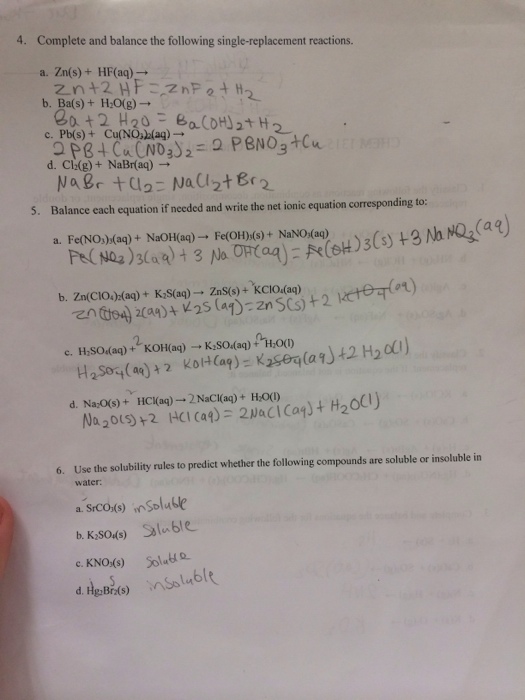 4. Complete and balance the following single-replacement reactions.
a. Zn(s) + HF(aq) →
Zn+2 HF = ZnF2 + H2
b. Ba(s) + H2O(g) →
Ba + 2 H2O = Ba(OH)2 + H2
c. Pb(s) + Cu(NO3)2(aq) →
2 PB + Cu(NO3)2 = 2 PBNO3 + Cu
d. Cl2(g) + NaBr(aq) →
NaBr + Cl2 = NaCl2 + Br2
5. Balance each equation if needed and write the net ionic equation corresponding to:
a. Fe(NO3)3(aq) + NaOH(aq) → Fe(OH)3(s) + NaNO3(aq)
Fe(NO3)3(aq) + 3 NaOH(aq) = Fe(OH)3(s) + 3 NaNO3(aq)
b. Zn(ClO4)2(aq) + K2S(aq) → ZnS(s) + 2 KClO4(aq)
Zn(ClO4)2(aq) + K2S(aq) = ZnS(s) + 2 KClO4(aq)
c. H2SO4(aq) + 2 KOH(aq) → K2SO4(aq) + 2 H2O(l)
H2SO4(aq) + 2 KOH(aq) = K2SO4(aq) + 2 H2O(l)
d. Na2O(s) + 2 HCl(aq) → 2 NaCl(aq) + H2O(l)
Na2O(s) + 2 HCl(aq) = 2NaCl(aq) + H2O(l)
6. Use the solubility rules to predict whether the following compounds are soluble or insoluble in
water:
a. SrCO3(s) insoluble
b. K2SO4(s) Soluble
c. KNO3(s) Soluble
d. Hg2Br2(s) insoluble